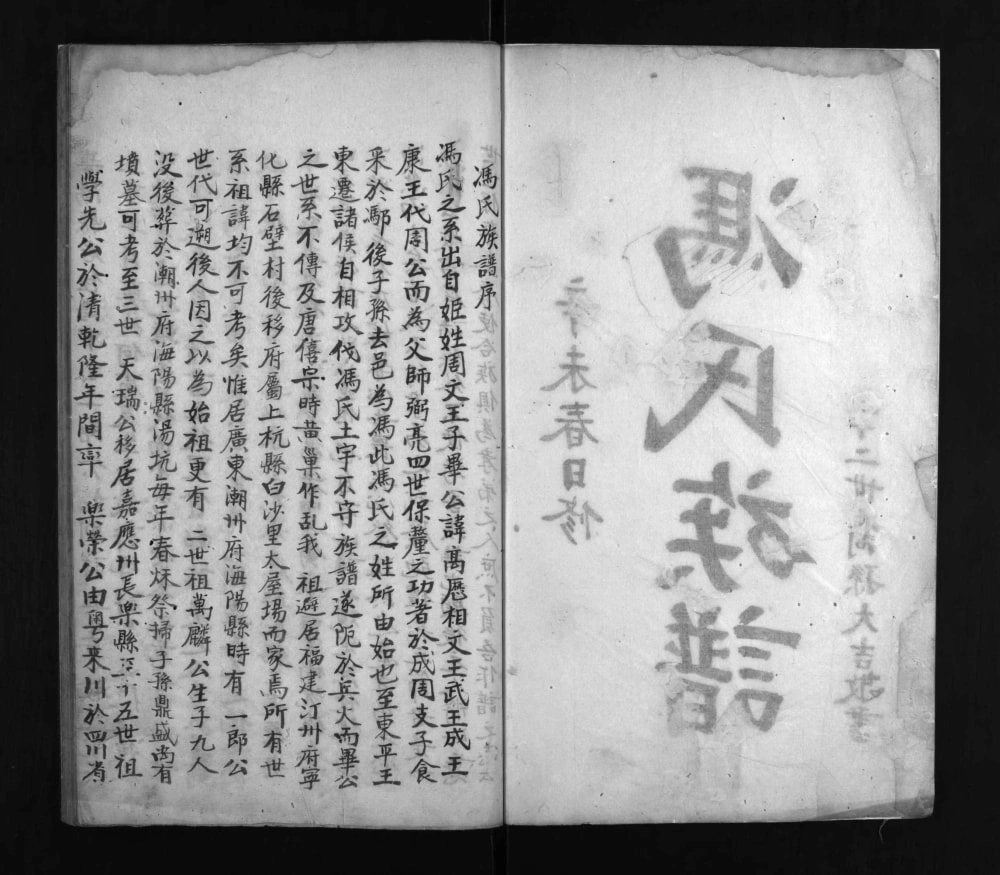 馮氏族譜
辛未春日修
馮氏族譜序
馮氏之系出自姬姓周文王子畢公諱高歷相文王武王成王
康王代周公而為父師弼亮四世保釐之功著於成周支子食
采於鄢後子孫去邑為馮此馮氏之姓所由始也至東平王
東遷諸侯自相攻伐馮氏土宇不守族譜遂阨於兵火而畢公
之世系不傳及唐僖宗時黃巢作乱我 祖避居福建汀州府寧
化縣石壁村後移府屬上杭縣白沙里太屋場而家焉所有世
系祖諱均不可考矣惟居廣東潮州府海陽縣時有 一郎公
世代可遡後人因之以為始祖更有 二世祖萬麟公生子九人
没後葬於潮州府海陽縣湯坑每年春秌祭掃子孫鼎盛尚有
墳墓可考至三世 天瑞公移居嘉應州長樂縣 十五世祖
學先公於清乾隆年間率 樂榮公由粤来川於四川省